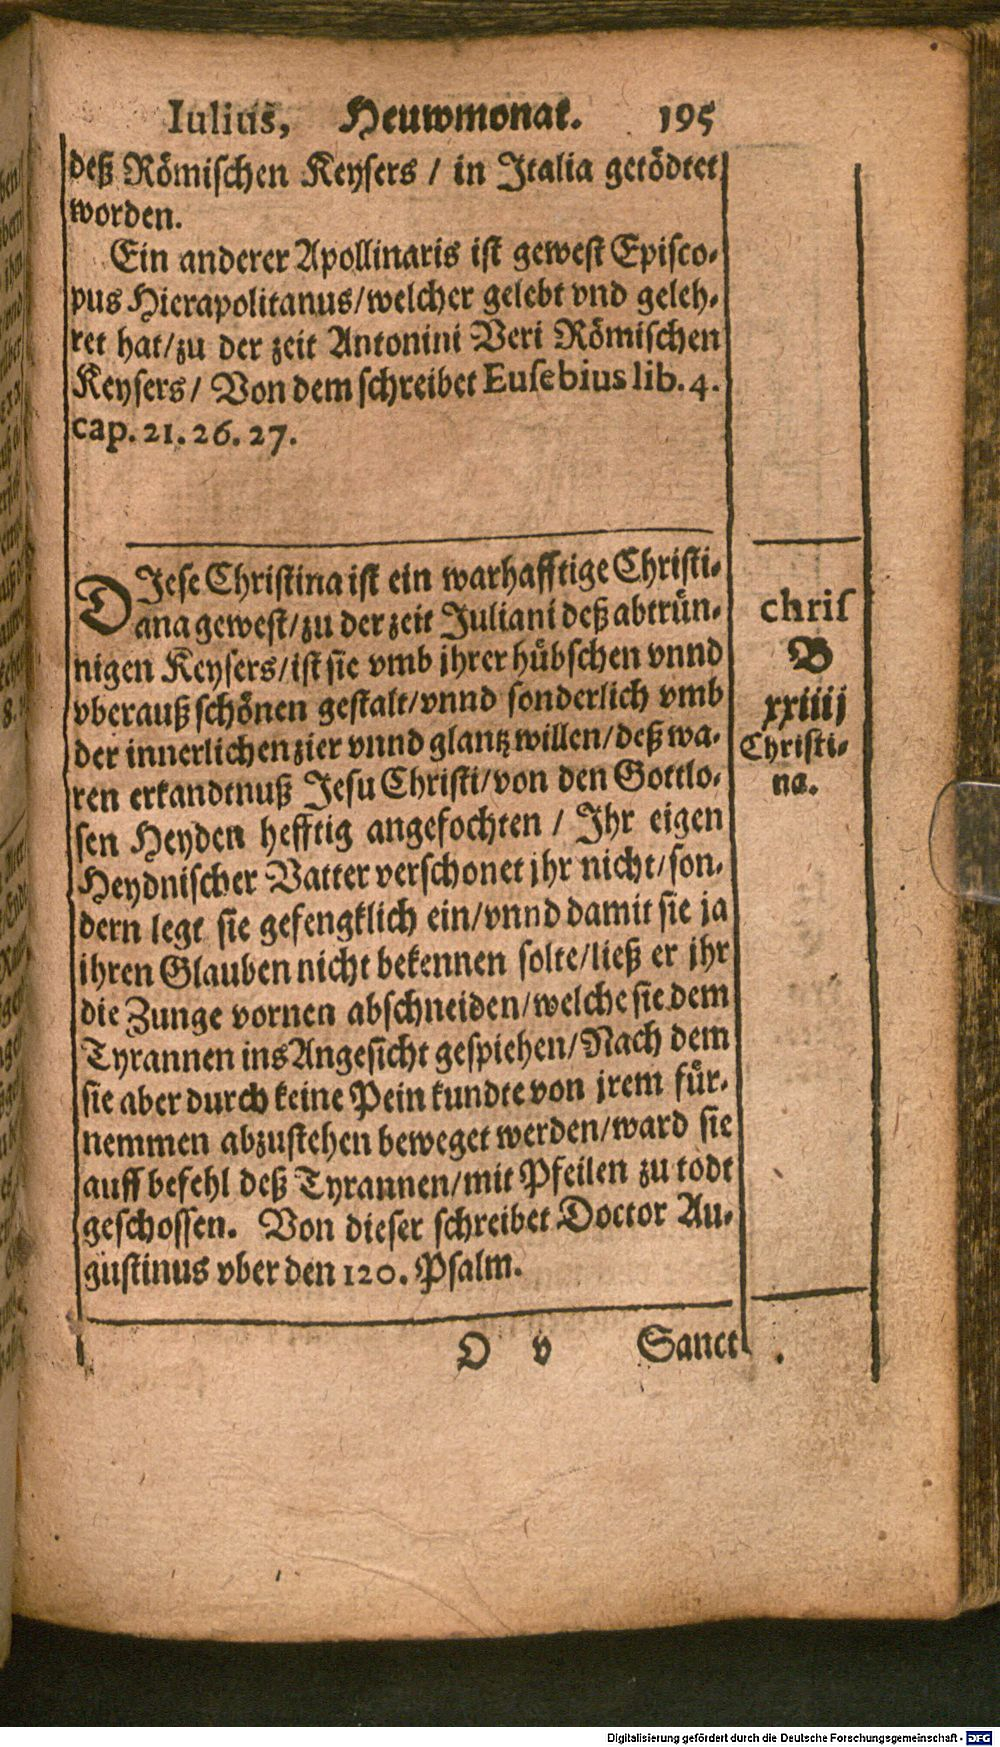 Iulius, Heuwmonat. 195
deß Römischen Keysers / in Italia getödtet
worden.
Ein anderer Apollinaris ist gewest Episco-
pus Hierapolitanus/welcher gelebt vnd geleh-
ret hat/zu der zeit Antonini Veri Römischen
Keysers/ Von dem schreibet Eusebius lib. 4.
cap. 21. 26. 27.
DIese Christina ist ein warhafftige Christi-
ana gewest/zu der zeit Juliani deß abtrün-
nigen Keysers/ist sie vmb jhrer hübschen vnnd
vberauß schönen gestalt/vnnd sonderlich vmb
der innerlichen zier vnnd glantz willen/deß wa-
ren erkandtnuß Jesu Christi/von den Gottlo-
sen Heyden hefftig angefochten / Ihr eigen
Heydnischer Vatter verschonet jhr nicht/son-
dern legt sie gefengklich ein/vnnd damit sie ja
ihren Glauben nicht bekennen solte/ließ er jhr
die Zunge vornen abschneiden/welche sie dem
Tyrannen ins Angesicht gespiehen/Nach dem
sie aber durch keine Pein kundte von jrem für-
nemmen abzustehen beweget werden/ward sie
auff befehl deß Tyrannen/mit Pfeilen zu todt
geschossen. Von dieser schreibet Doctor Au-
gustinus vber den 120. Psalm.
chriſ
B
xxiiij
Christi-
na.
O v Sanct
Digitalisierung gefördert durch die Deutsche Forschungsgemeinschaft - DFG